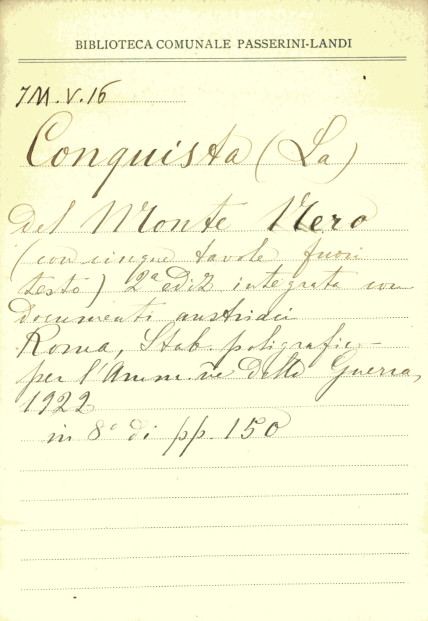 BIBLIOTECA COMUNALE PASSERINI-LANDI
7M.V.16
Conquista (La)
del Monte Nero
(con cinque tavole fuori
testo) 2ª ediz integrata con
documenti austriaci
Roma, Stab. poligrafico
per l'Amm.ne della Guerra,
1922
in 8° di pp. 150